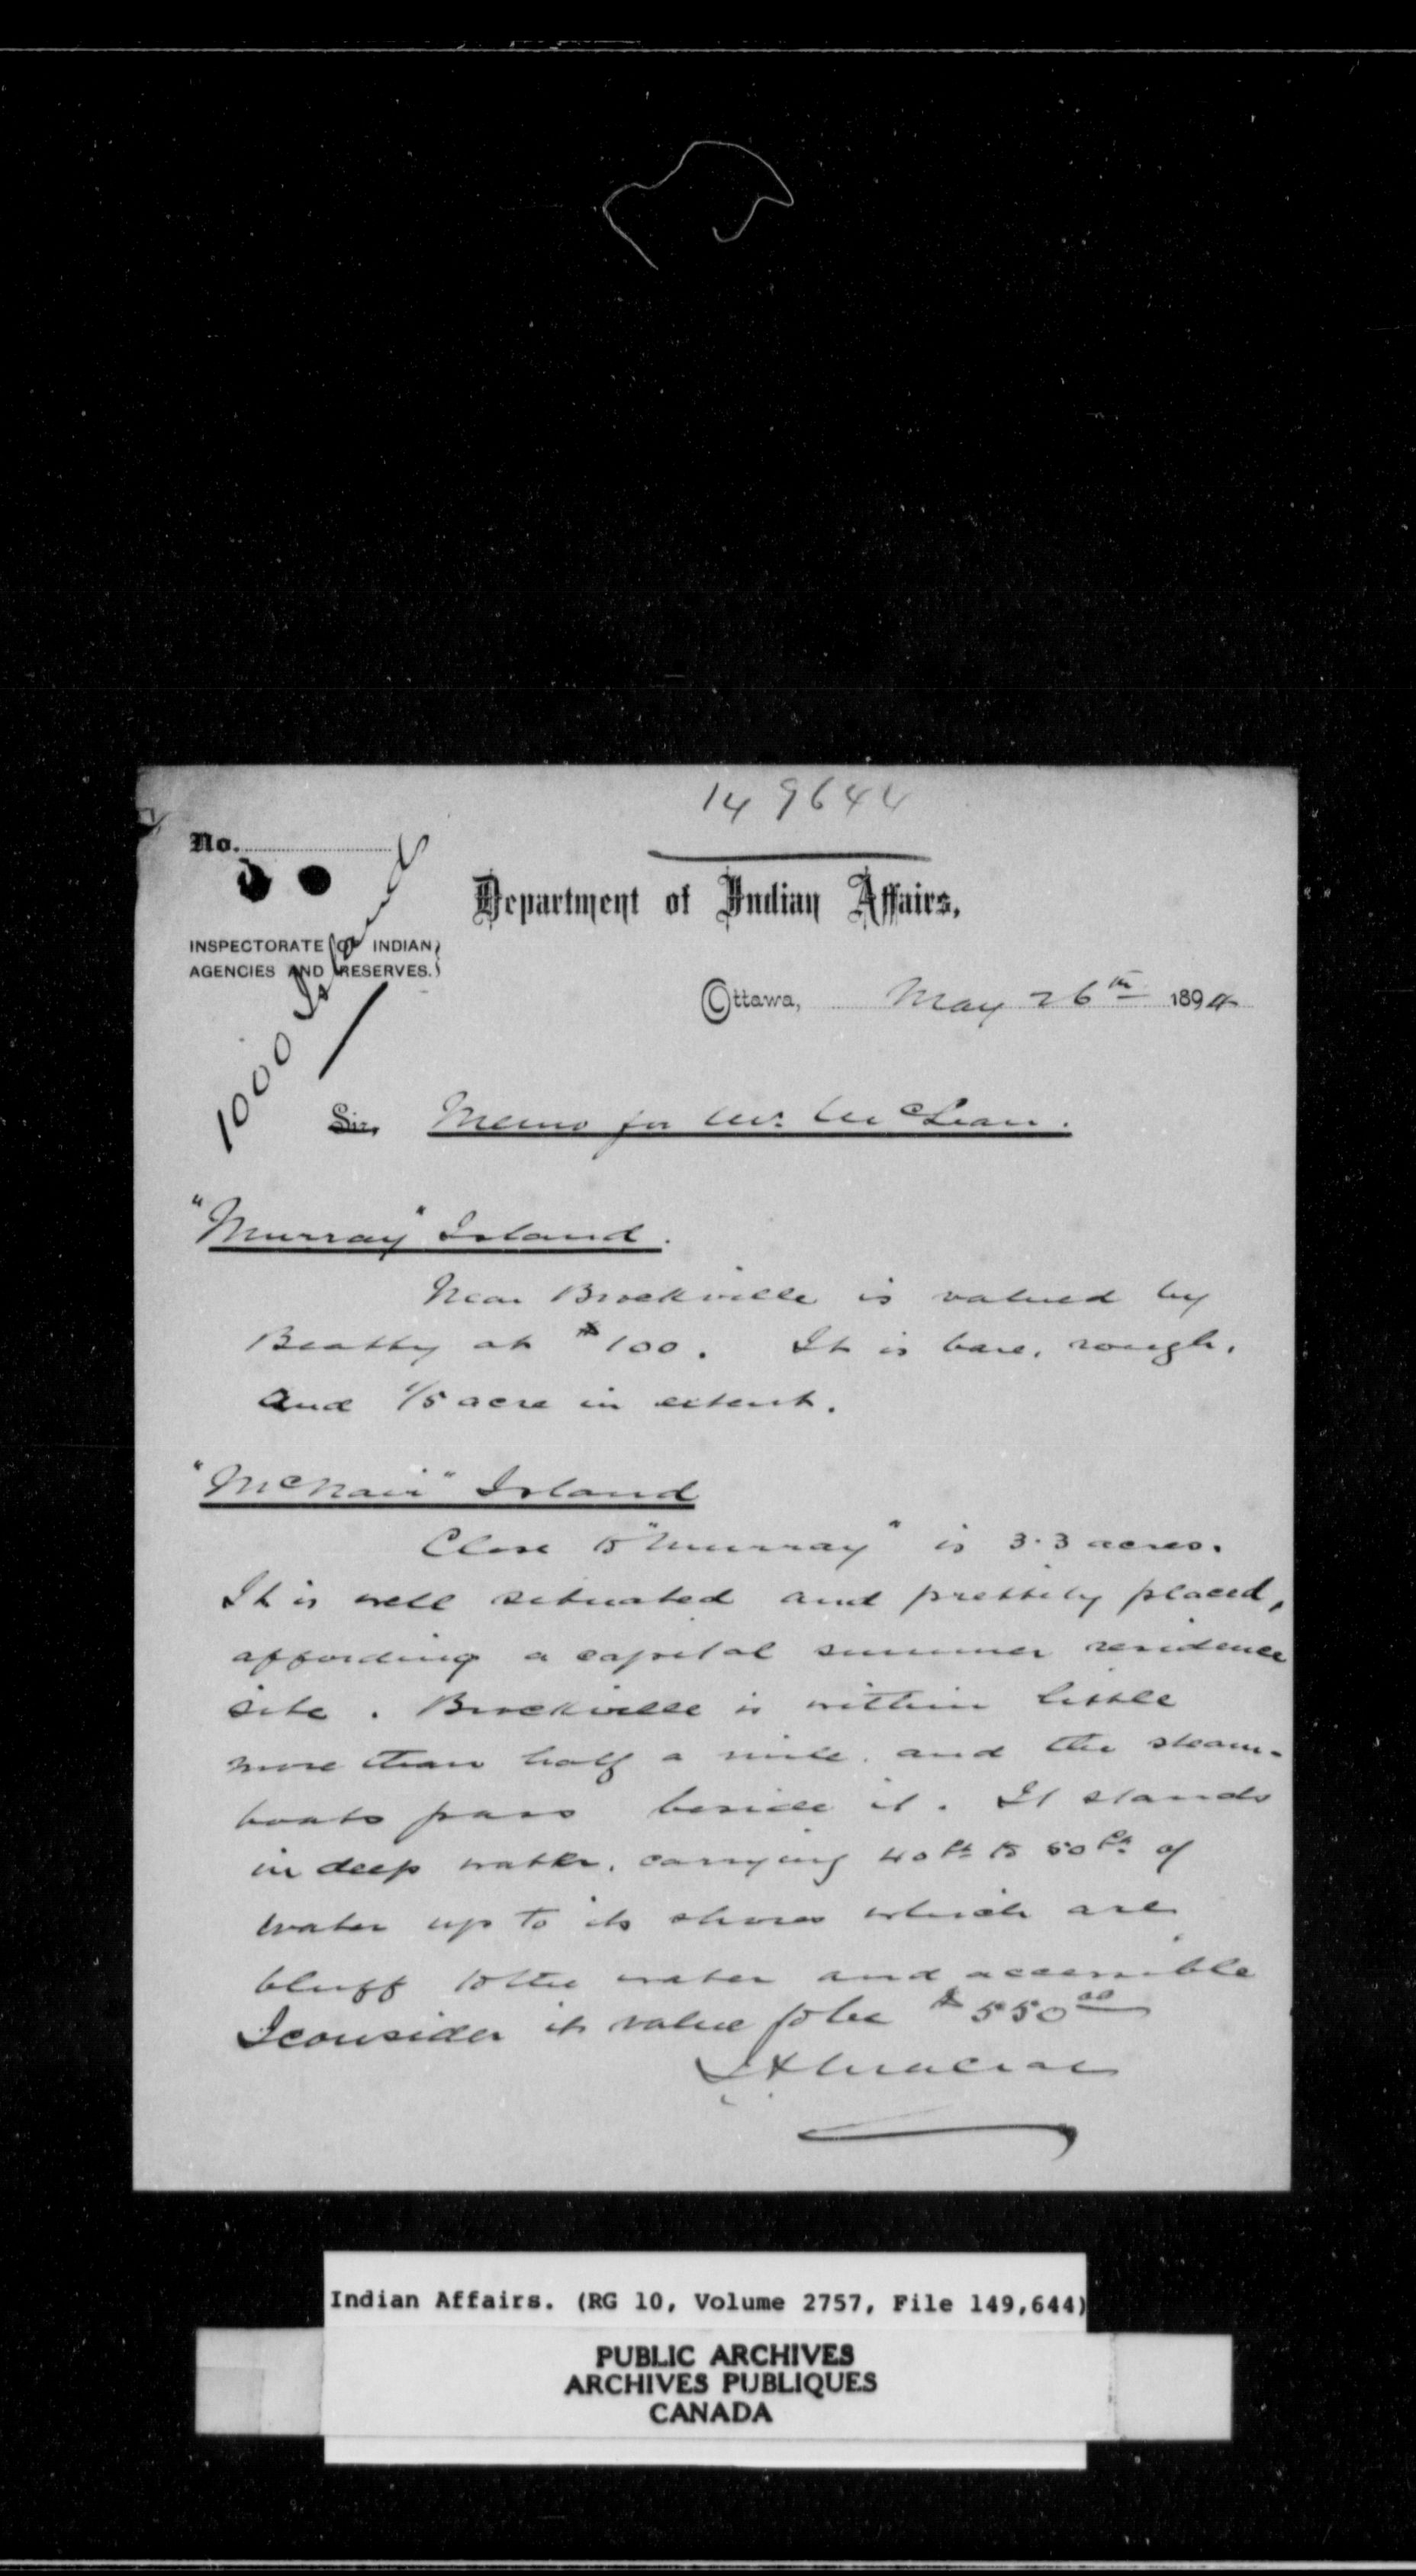 149644
No.
Department of Indian Affairs,
INSPECTORATE OF INDIAN
AGENCIES AND RESERVES.
1000 Island
Ottawa, May 26th 1894
Sir, Memo for Mr. McLean.
"Murray" Island.
Near Brockville is valued by
Beatty at $100. It is bare, rough,
and 1/5 acre in extent.
"McNair" Island
Close to "Murray" is 3.3 acres.
It is well situated and prettily placed,
affording a capital summer residence
site. Brockville is within little
more than half a mile, and the steam-
boats pass beside it. It stands
in deep water, carrying 40 ft to 50 ft of
water up to its shores which are
bluff to the water and accessible
I consider its value to be $550 00
Indian Affairs. (RG 10, Volume 2757, File 149,644)
PUBLIC ARCHIVES
ARCHIVES PUBLIQUES
CANADA